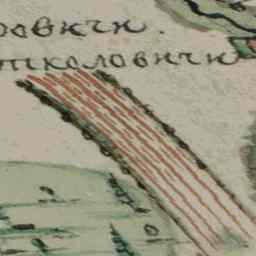 ровичи.
школовичи